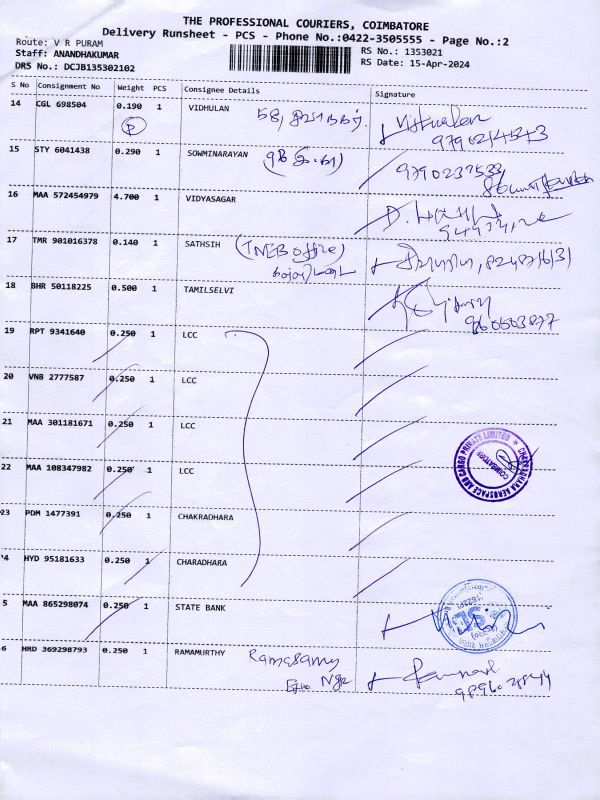 THE PROFESSIONAL COURIERS, COIMBATORE
Delivery Runsheet - PCS - Phone No.:0422-3505555 - Page No.:2
Route: V R PURAM
Staff: ANANDHAKUMAR
DRS No.: DCJB135302102
RS No.: 1353021
RS Date: 15-Apr-2024
S No Consignment No Weight PCS Consignee Details Signature
14 CGL 698504 0.190 1 VIDHULAN
P
15 STY 6041438 0.290 1 SOWMINARAYAN
9790237533
16 MAA 572454979 4.700 1 VIDYASAGAR
17 TMR 901016378 0.140 1 SATHSIH (TNEB office)
18 BHR 50118225 0.500 1 TAMILSELVI
19 RPT 9341640 0.250 1 LCC
20 VNB 2777587 0.250 1 LCC
21 MAA 301181671 0.250 1 LCC
22 MAA 108347982 0.250 1 LCC
23 PDM 1477391 0.250 1 CHAKRADHARA
'4 HYD 95181633 0.250 1 CHARADHARA
CHAKRADHARA AEROSPACE AND CARGO PRIVATE LIMITED
COIMBATORE
5 MAA 865298074 0.250 1 STATE BANK
6 HRD 369298793 0.250 1 RAMAMURTHY Ramasamy